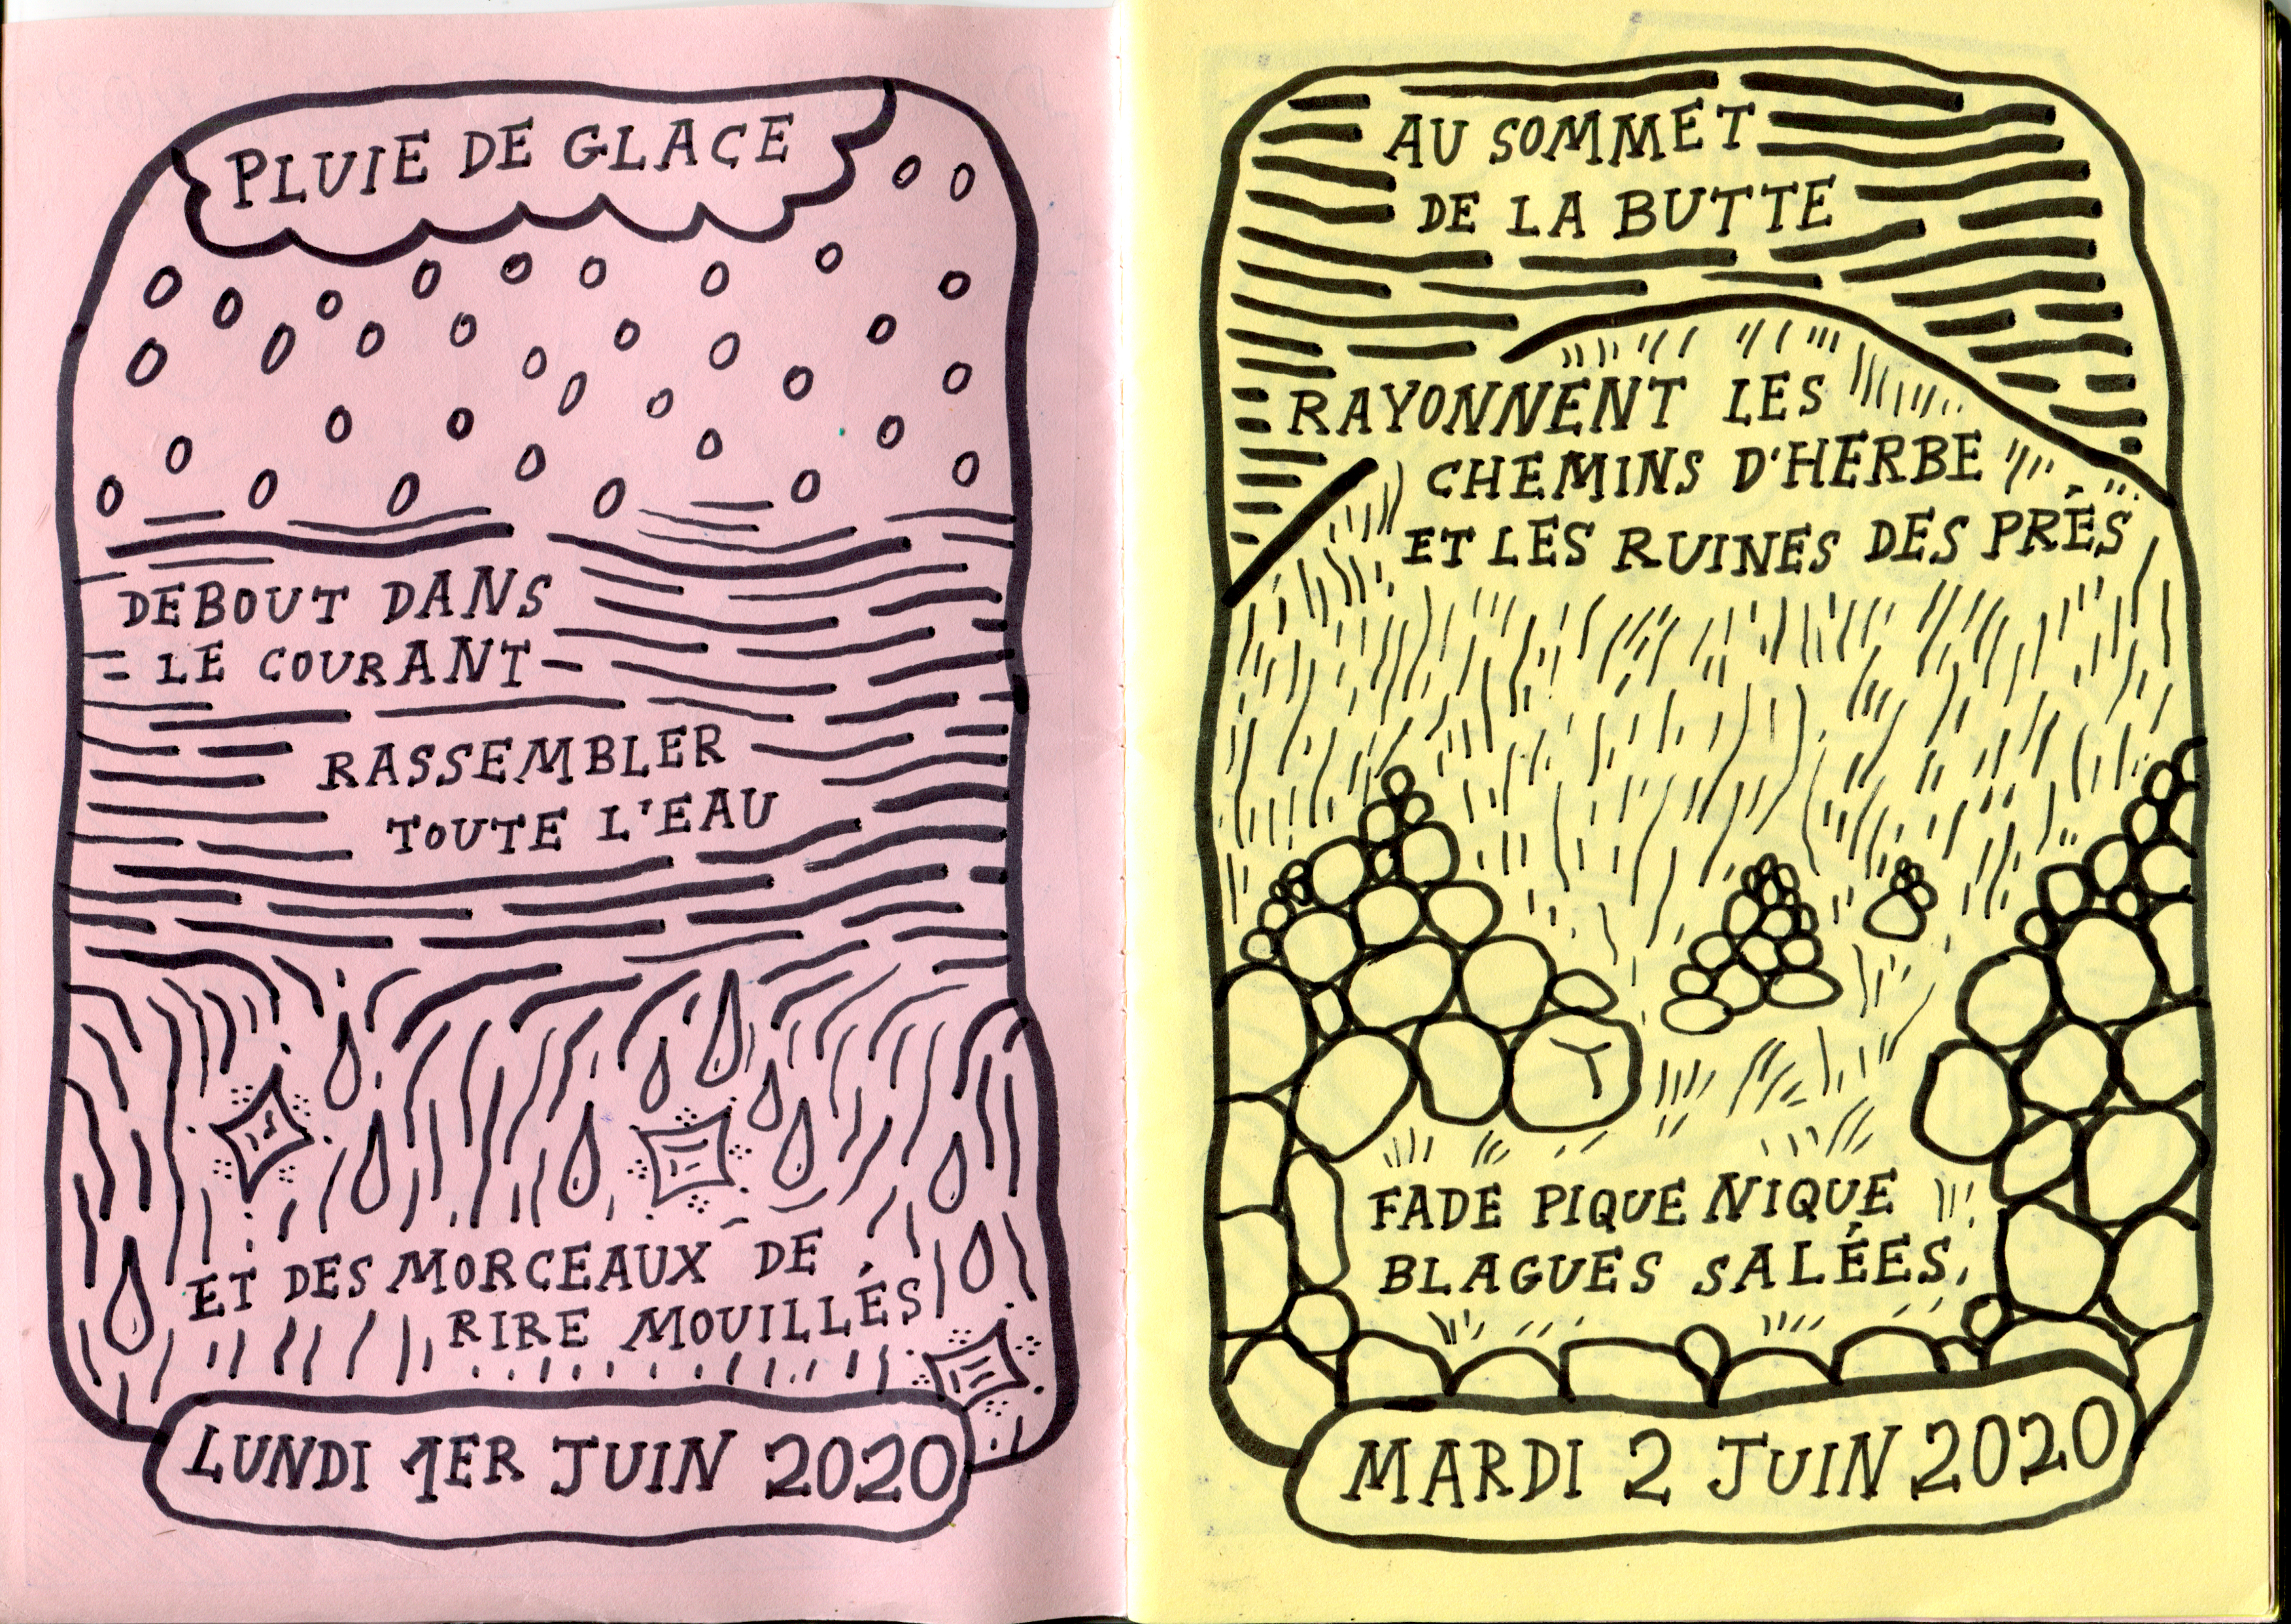 PLUIE DE GLACE
DEBOUT DANS
LE COURANT
RASSEMBLER
TOUTE L'EAU
ET DES MORCEAUX DE
RIRE MOUILLÉS
LUNDI 1ER JUIN 2020
AU SOMMET
DE LA BUTTE
RAYONNENT LES
CHEMINS D'HERBE
ET LES RUINES DES PRÉS
FADE PIQUE NIQUE
BLAGUES SALÉES
MARDI 2 JUIN 2020